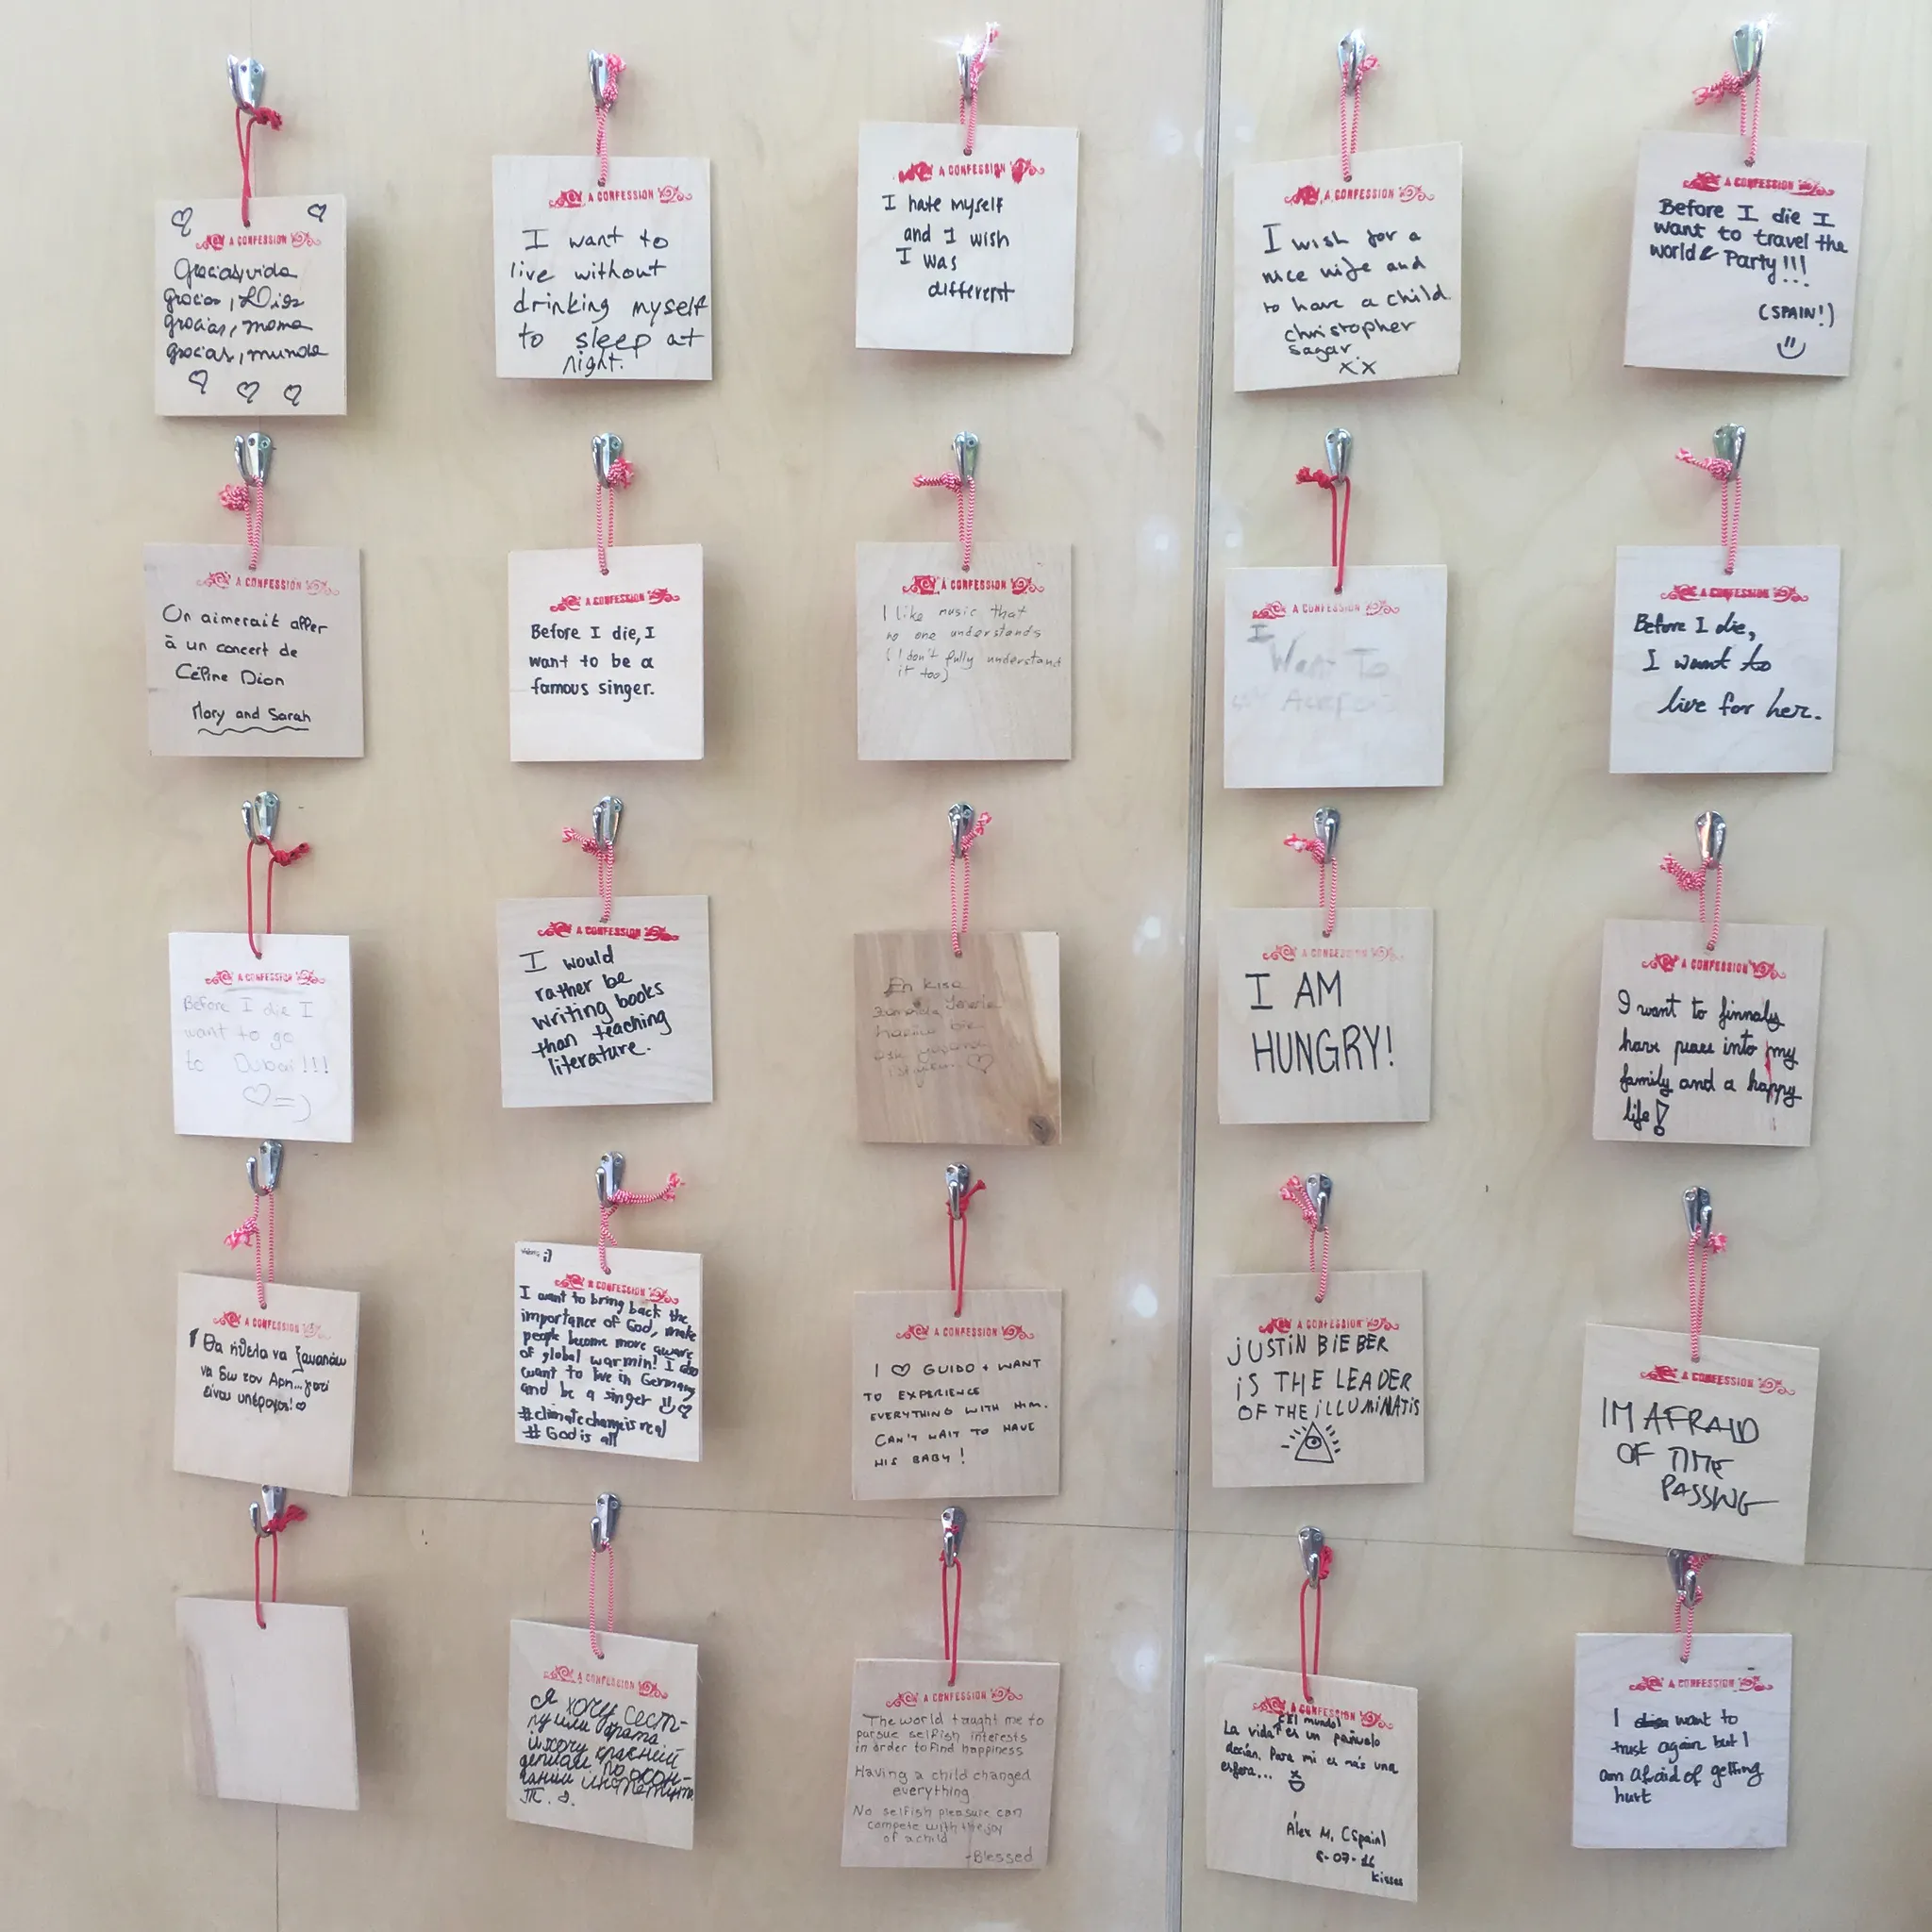 A CONFESSION
Gracias, vida
gracias, Dios
gracias, mama
gracias, mundo
A CONFESSION
I want to
live without
drinking myself
to sleep at
night.
A CONFESSION
I hate myself
and I wish
I was
different
A CONFESSION
I wish for a
nice wife and
to have a child.
christopher
sagar
xx
A CONFESSION
Before I die I
want to travel the
world & Party!!!
(SPAIN!)
A CONFESSION
On aimerait aller
à un concert de
Céline Dion
Mary and Sarah
A CONFESSION
Before I die, I
want to be a
famous singer.
A CONFESSION
I like music that
no one understands
(I don't fully understand
it too)
A CONFESSION
I
Want To
A CONFESSION
Before I die,
I want to
live for her.
A CONFESSION
Before I die I
want to go
to Dubai!!!
♡=)
A CONFESSION
I would
rather be
writing books
than teaching
literature.
En kısa
zamanda
A CONFESSION
I AM
HUNGRY!
A CONFESSION
I want to finnaly
have peace into my
family and a happy
life!
A CONFESSION
Θα ήθελα να ξαναπάω
να δω τον Αρη... γιατί
είναι υπέροχος! ♡
;)
A CONFESSION
I want to bring back the
importance of God, make
people become more aware
of global warmin! I also
want to live in Germany
and be a singer
#climatechangeisreal
# God is all
A CONFESSION
I ♡ GUIDO + WANT
TO EXPERIENCE
EVERYTHING WITH HIM.
CAN'T WAIT TO HAVE
HIS BABY!
A CONFESSION
jUSTiN BiEBER
iS THE LEADER
OF THE iLLUMiNATiS
A CONFESSION
IM AFRAID
OF TIME
PASSING
A CONFESSION
Я хочу сест-
ру или брата
и хочу красний
диплом по окон-
чании институ
т.
A CONFESSION
The world taught me to
pursue selfish interests
in order to find happiness
Having a child changed
everything
No selfish pleasure can
compete with the joy
of a child
-Blessed
A CONFESSION
(El mundo)
La vida es un pañuelo
decían. Para mi es más una
esfera...
Álex M. (Spain)
6-07-16
kisses
A CONFESSION
I want to
trust again but I
am afraid of getting
hurt